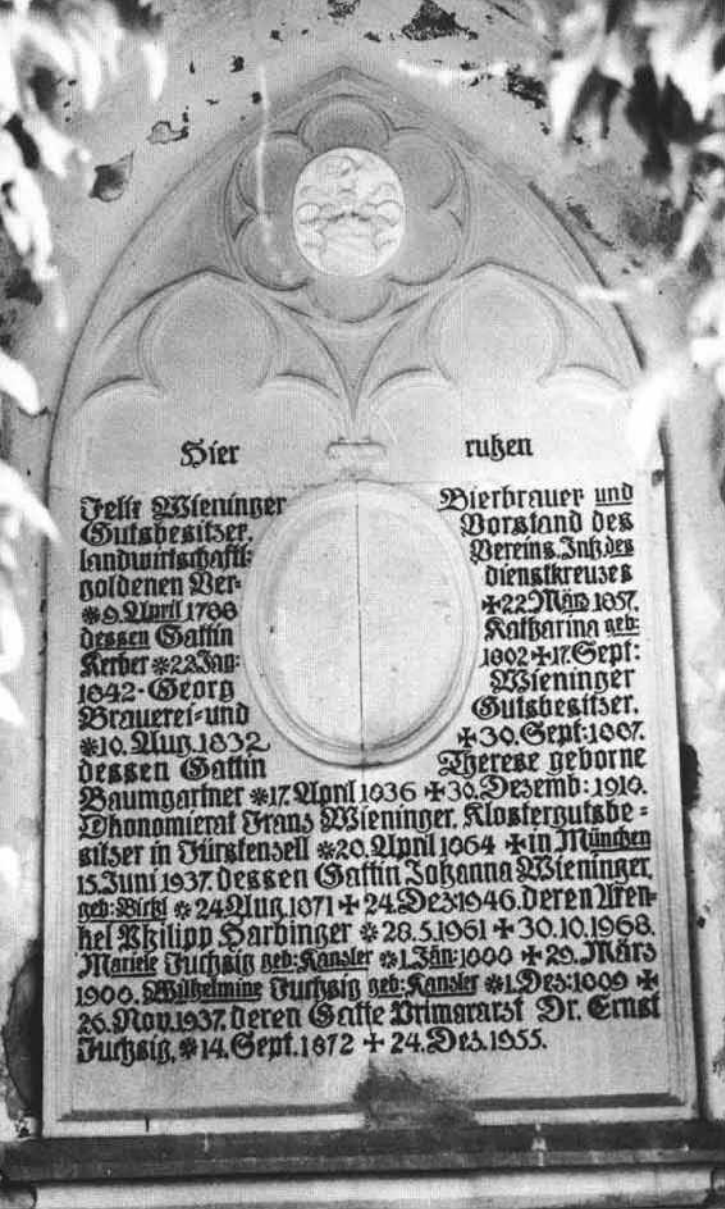 Hier ruhen
Felix Wieninger Bierbrauer und
Gutsbesitzer, Vorstand des
landwirtschaftl: Vereins, Inh. des
goldenen Ver- dienstkreuzes
✻ 9. April 1788 ✝ 22 März 1857.
dessen Gattin Katharina geb:
Kerber ✻ 22 Jan: 1802 ✝ 17. Sept:
1842 · Georg Wieninger
Brauerei- und Gutsbesitzer.
✻ 10. Aug. 1832 ✝ 30. Sept: 1887.
dessen Gattin Therese geborne
Baumgartner ✻ 17. April 1836 ✝ 30. Dezemb: 1910.
Ökonomierat Franz Wieninger, Klostergutsbe-
sitzer in Fürstenzell ✻ 20. April 1864 ✝ in München
15. Juni 1937. dessen Gattin Johanna Wieninger,
geb: ✻ 24 Aug. 1871 ✝ 24. Dez: 1946. deren Uren-
kel Philipp Harbinger ✻ 28.5.1961 ✝ 30.10.1968.
Mariele Fuchsig geb: Kanzler ✻ 1. Jän: ✝ 29. März
Wilhelmine Fuchsig geb: Kanzler ✻ 1. Dez: ✝
26. Nov. 1937. deren Gatte Primararzt Dr. Ernst
Fuchsig, ✻ 14. Sept. 1872 ✝ 24. Dez. 1955.